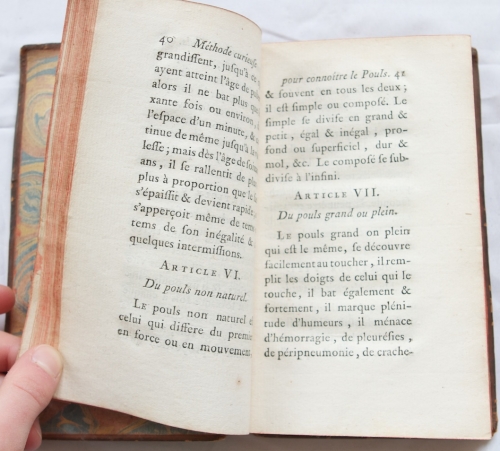 40 Méthode curieuse
grandissent, jusqu'à ce
ayent atteint l'âge de
alors il ne bat plus que
xante fois ou environ,
l'espace d'un minute, &
tinue de même jusqu'à la
lesse; mais dès l'âge de
ans, il se rallentit de plus
plus à proportion que le
s'épaissit & devient rapide;
s'apperçoit même de tems
tems de son inégalité &
quelques intermissions.
ARTICLE VI.
Du pouls non naturel.
LE pouls non naturel est
celui qui differe du premier
en force ou en mouvement,
pour connoitre le Pouls. 41
& souvent en tous les deux;
il est simple ou composé. Le
simple se divise en grand &
petit, égal & inégal, pro-
fond ou superficiel, dur &
mol, &c. Le composé se sub-
divise à l'infini.
ARTICLE VII.
Du pouls grand ou plein.
LE pouls grand on plein
qui est le même, se découvre
facilement au toucher, il rem-
plit les doigts de celui qui le
touche, il bat également &
fortement, il marque pléni-
tude d'humeurs, il ménace
d'hémorragie, de pleurésies,
de péripneumonie, de crache-